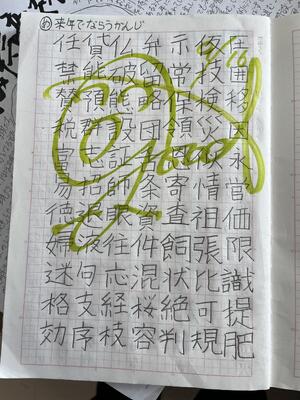 め 来年でならうかんじ
圧囲移因永営価限識提肥
仮技検災情祖張比可規
示常保領寄査飼状絶判
弁留略団条資件混桜容
仏破態設証師眼往応経枝
貸能群志招退液句支序
任禁賛税富易徳婦迷格効
Good